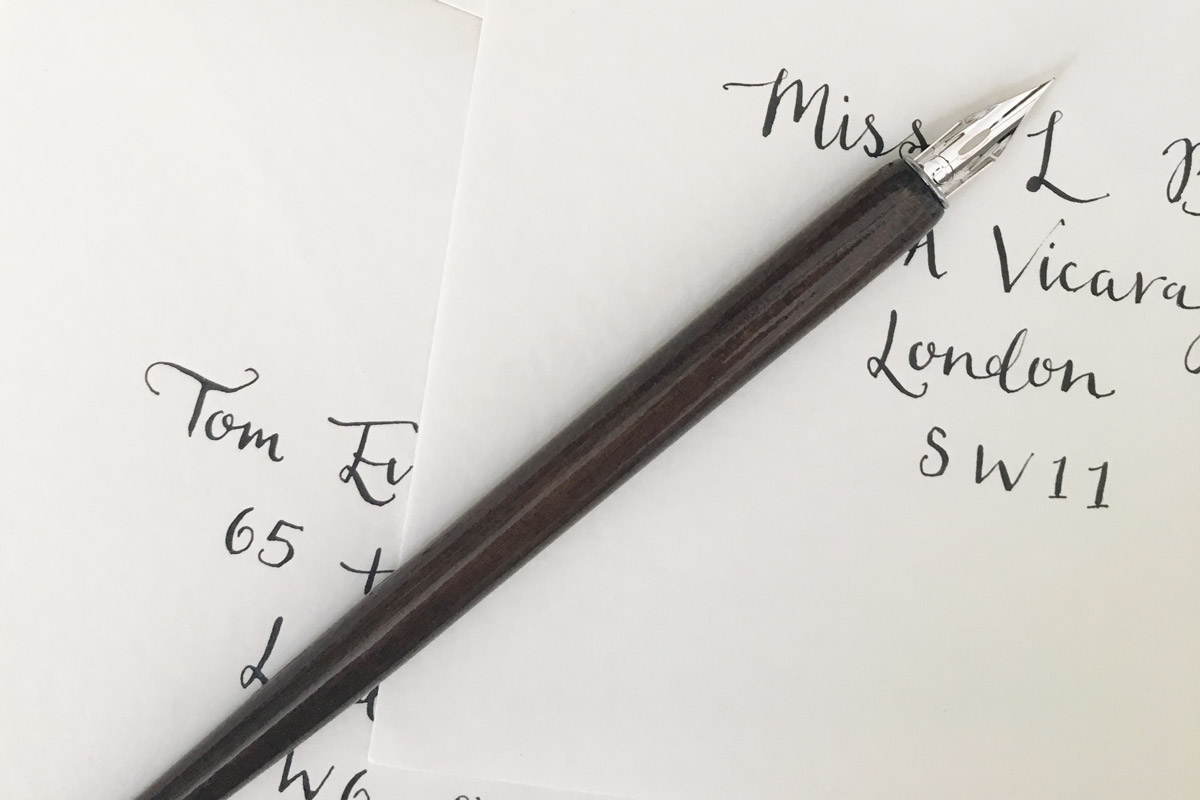 Miss L
Vicara
London
SW11
Tom Ev
65
W6